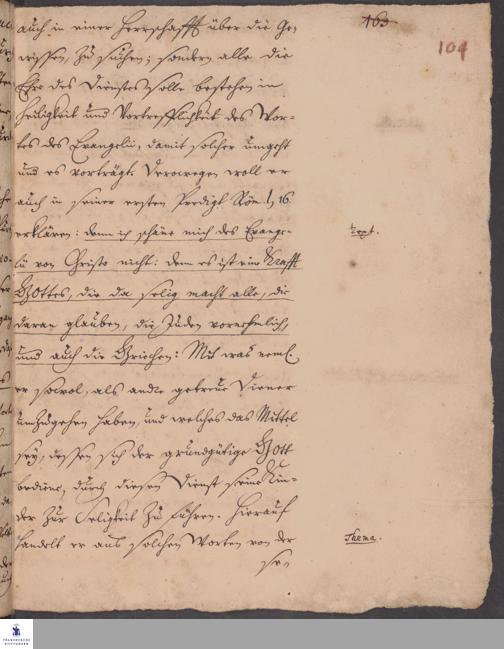 163
104
auch in einer Herrschafft über die Ge-
wissen, zu suchen; sondern alle die
Ehre des Dienstes solle bestehen in
Heiligkeit und Vortrefflichkeit des Wor-
tes des Evangelii, damit solcher umgeht
und es vorträgt. Derowegen woll er
auch in seiner ersten Predigt Röm. 1, 16.
erklären: denn ich schäme mich des Evange-
lii von Christo nicht: denn es ist eine Krafft
Gottes, die da selig macht alle, die
daran glauben, die Juden vornehmlich,
und auch die Griechen: Mit was neml.
er sowol, als andre getreue Diener
umzugehen haben, und welches das Mittel
sey, dessen sich der grundgütige Gott
bediene, durch diesen Dienst seine Kin-
der zur Seligkeit zu führen. Hierauf
handelt er aus solchen Worten von der
se-
Text.
Thema.
FRANCKESCHE
STIFTUNGEN